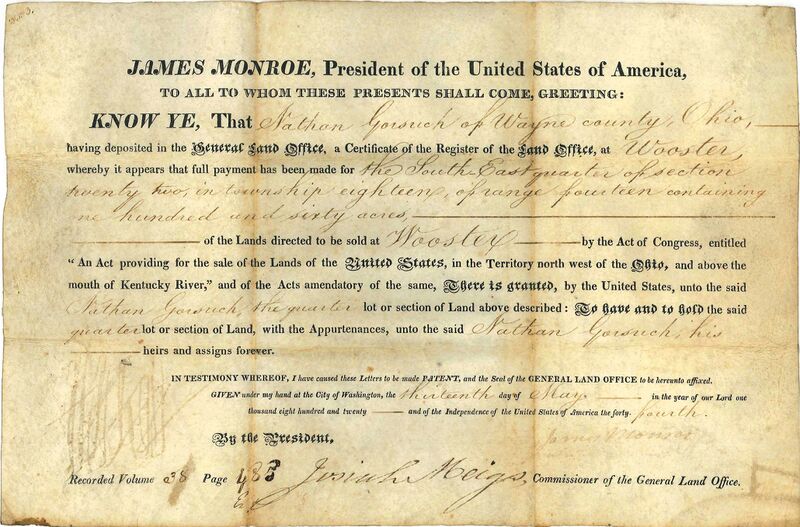 JAMES MONROE, President of the United States of America,
TO ALL TO WHOM THESE PRESENTS SHALL COME, GREETING:
KNOW YE, That Nathan Gorsuch of Wayne county, Ohio,
having deposited in the General Land Office, a Certificate of the Register of the Land Office, at Wooster,
whereby it appears that full payment has been made for the South East quarter of section
twenty two, in township eighteen, of range fourteen containing
one hundred and sixty acres,
of the Lands directed to be sold at Wooster by the Act of Congress, entitled
“An Act providing for the sale of the Lands of the United States, in the Territory north west of the Ohio, and above the
mouth of Kentucky River,” and of the Acts amendatory of the same, There is granted, by the United States, unto the said
Nathan Gorsuch, the quarter lot or section of Land above described: To have and to hold the said
quarter lot or section of Land, with the Appurtenances, unto the said Nathan Gorsuch, his
heirs and assigns forever.
IN TESTIMONY WHEREOF, I have caused these Letters to be made PATENT, and the Seal of the GENERAL LAND OFFICE to be hereunto affixed.
GIVEN under my hand at the City of Washington, the thirteenth day of May in the year of our Lord one
thousand eight hundred and twenty and of the Independence of the United States of America the forty-fourth.
By the President, James Monroe
Recorded Volume 38 Page 483 Josiah Meigs, Commissioner of the General Land Office.